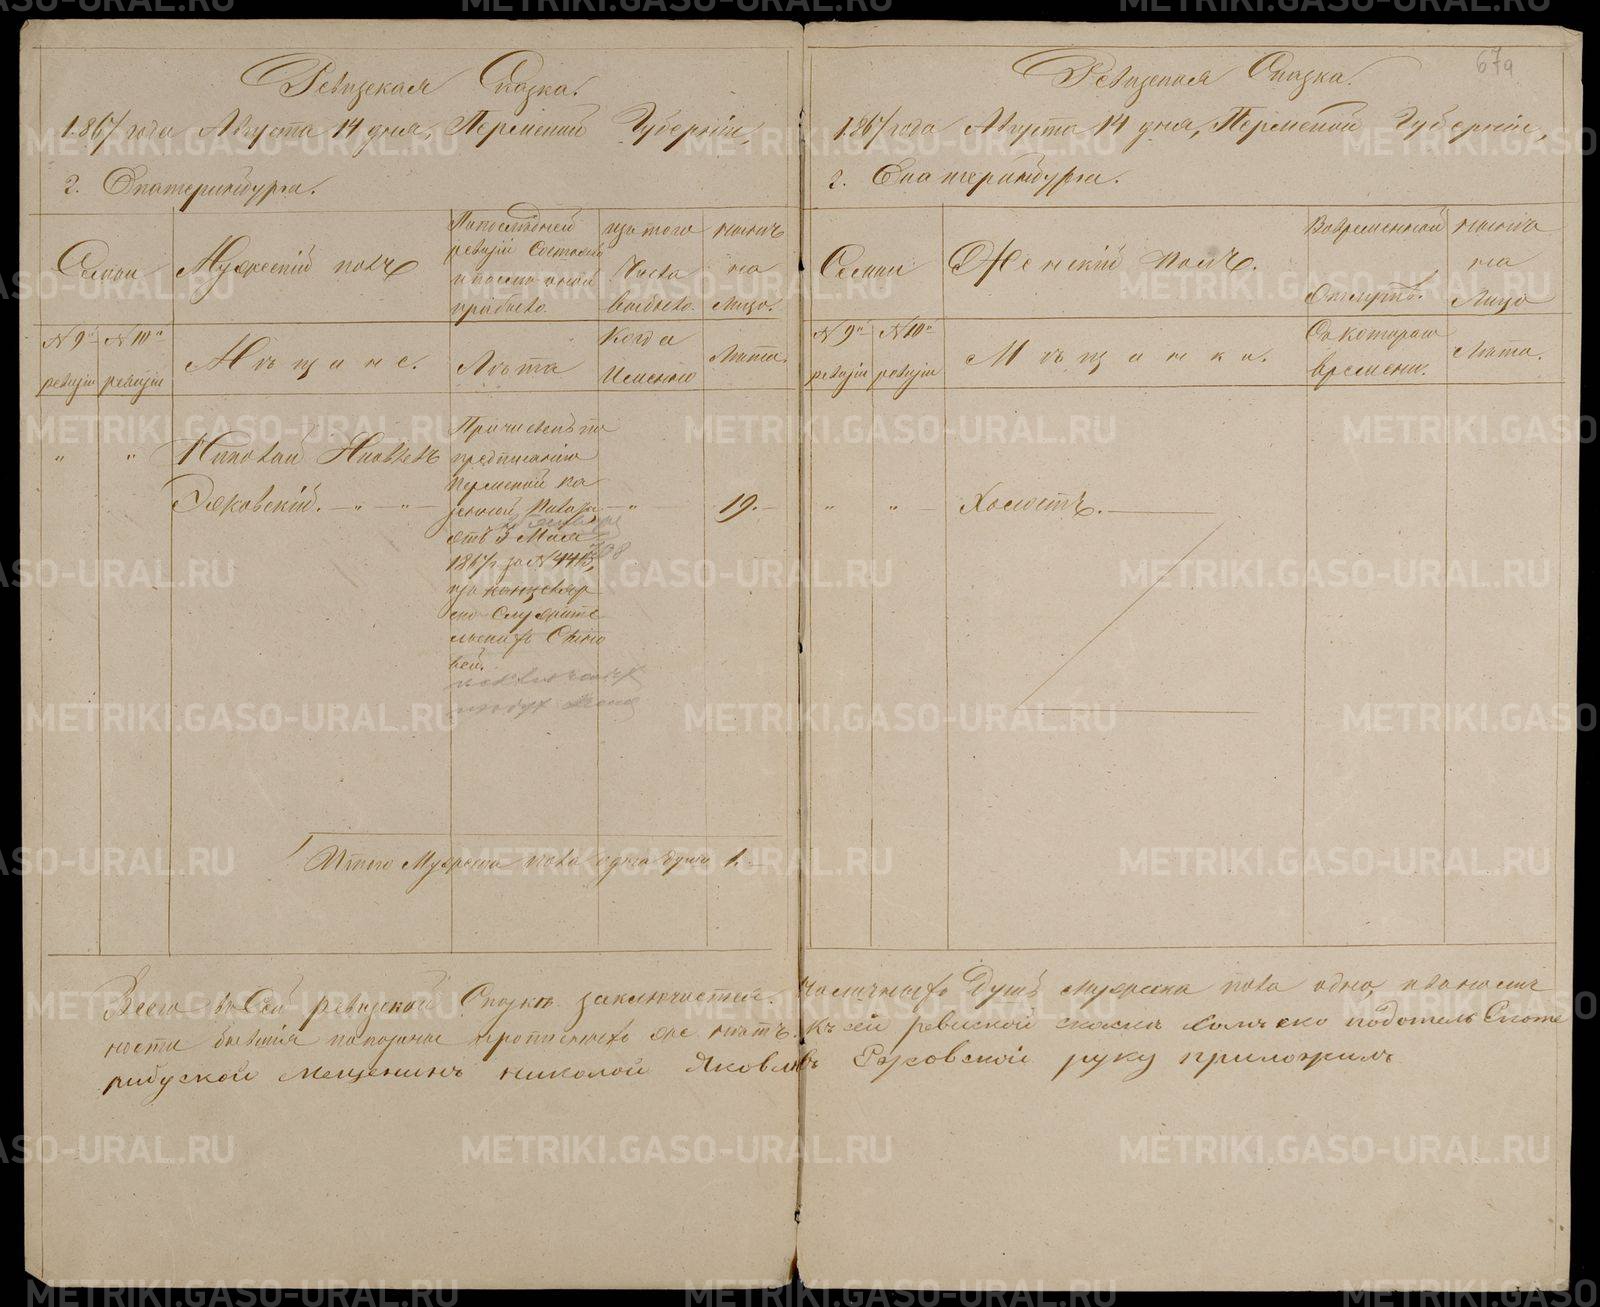 Ревизская Сказка.
1867 года Августа 14 дня, Пермской Губернiи,
г. Екатеринбурга.
Семьи
Мужескiй полъ
По последней ревизiи состояло и после оной прибыло.
Изъ того числа выбыло.
Ныне на лицо.
№ 9й ревизiи
№ 10й ревизiи
Мѣщане.
Лѣта
Когда именно
Лѣта.
" " Николай Яковлевъ
Причисленъ по
предписанiю
Пермской Ка
зенной Палаты
отъ 3 Мая
1867 за №
изъ канцеляр
ско Служите
льскихъ Сыно
вей.
19.
Итого Мужеска пола одна душа 1.
Ревизская Сказка.
67а
1867 года Августа 14 дня, Пермской Губернiи,
г. Екатеринбурга.
Семьи
Женскiй полъ.
Во временной отлучке.
Ныне на лицо
№ 9й ревизiи
№ 10й ревизiи
Мѣщанки.
Съ котораго времени.
Лѣта.
" " Холостъ.
Всего въ сей ревизской Сказкѣ заключается наличныхъ Душъ мужеска пола одна, а
ности бытiя прописныхъ не имѣтъ. Къ сей ревиской сказки
мещенинъ николой Яковлевъ руку приложилъ
METRIKI.GASO-URAL.RU